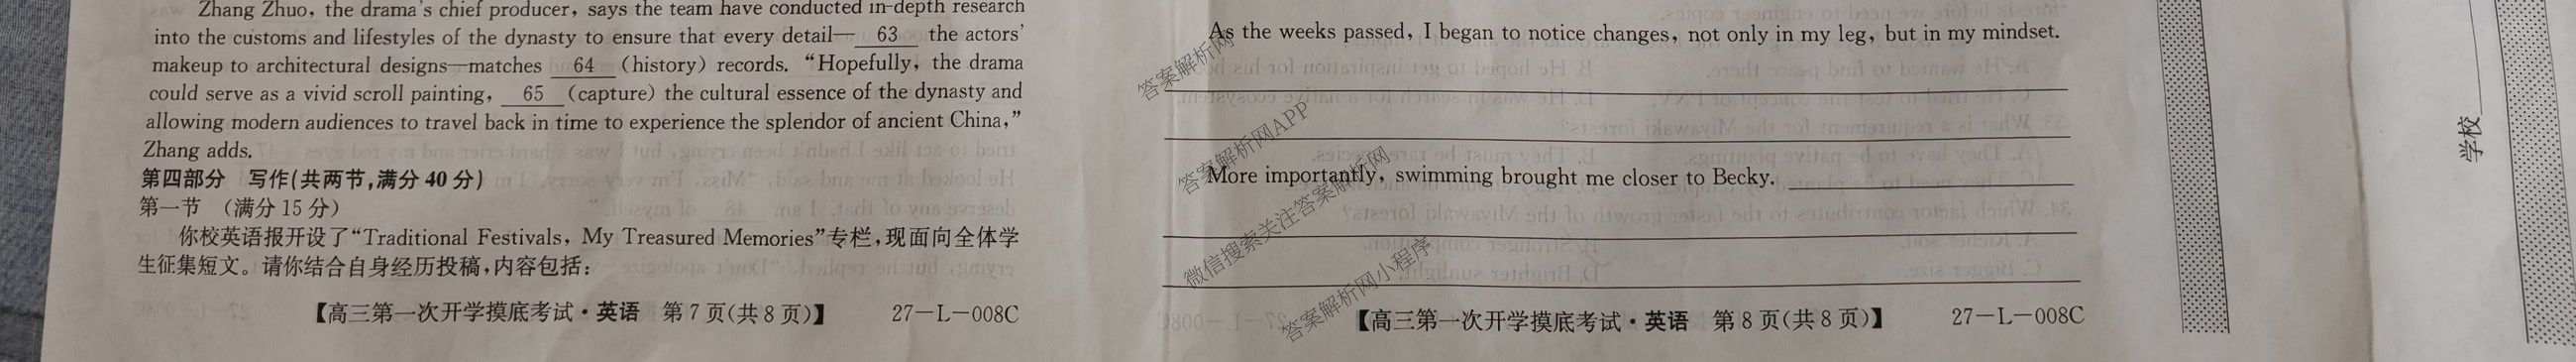 Zhang Zhuo, the drama's chief producer, says the team have conducted in-depth research
into the customs and lifestyles of the dynasty to ensure that every detail— 63 the actors'
makeup to architectural designs—matches 64 (history) records. “Hopefully, the drama
could serve as a vivid scroll painting, 65 (capture) the cultural essence of the dynasty and
allowing modern audiences to travel back in time to experience the splendor of ancient China,”
Zhang adds.
第四部分 写作(共两节,满分40分)
第一节 (满分15分)
你校英语报开设了“Traditional Festivals, My Treasured Memories”专栏,现面向全体学
生征集短文。请你结合自身经历投稿,内容包括:
【高三第一次开学摸底考试·英语 第7页(共8页)】 27-L-008C
As the weeks passed, I began to notice changes, not only in my leg, but in my mindset.
More importantly, swimming brought me closer to Becky.
【高三第一次开学摸底考试·英语 第8页(共8页)】 27-L-008C
答案解析网
答案解析网APP
微信搜索关注答案解析网
答案解析网小程序
学校